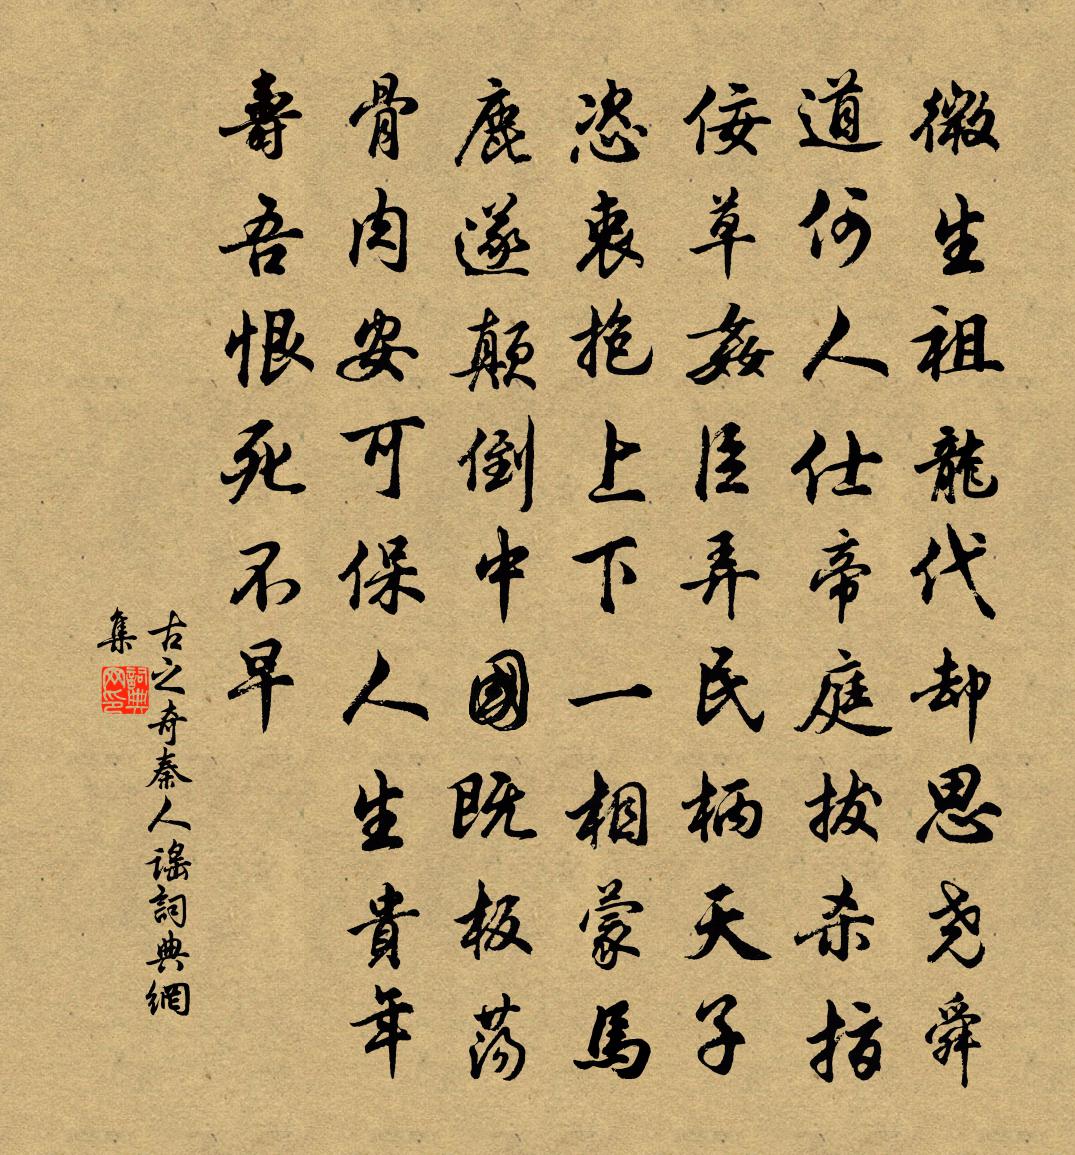 微生祖龍代却思尧舜
道何人仕帝庭拔杀指
佞草姦臣弄民柄天子
恣衷抱上下一相蒙馬
鹿遂颠倒中國既板荡
骨肉安可保人生貴年
壽吾恨死不早
古之奇秦人谣詞典網
集
詞典网印